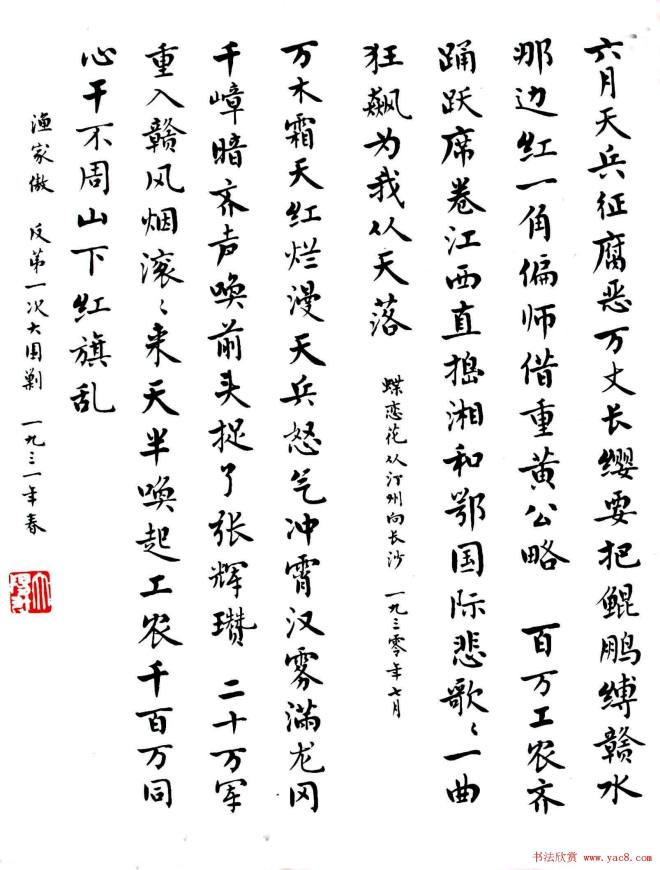 六月天兵征腐恶万丈长缨要把鲲鹏缚赣水
那边红一角偏师借重黄公略 百万工农齐
踊跃席卷江西直捣湘和鄂国际悲歌〻一曲
狂飙为我从天落 蝶恋花从汀州向长沙 一九三零年七月
万木霜天红烂漫天兵怒气冲霄汉雾满龙冈
千嶂暗齐声唤前头捉了张辉瓒 二十万军
重入赣风烟滚〻来天半唤起工农千百万同
心干不周山下红旗乱
渔家傲 反第一次大围剿 一九三一年春
书法欣赏 www.yac8.com